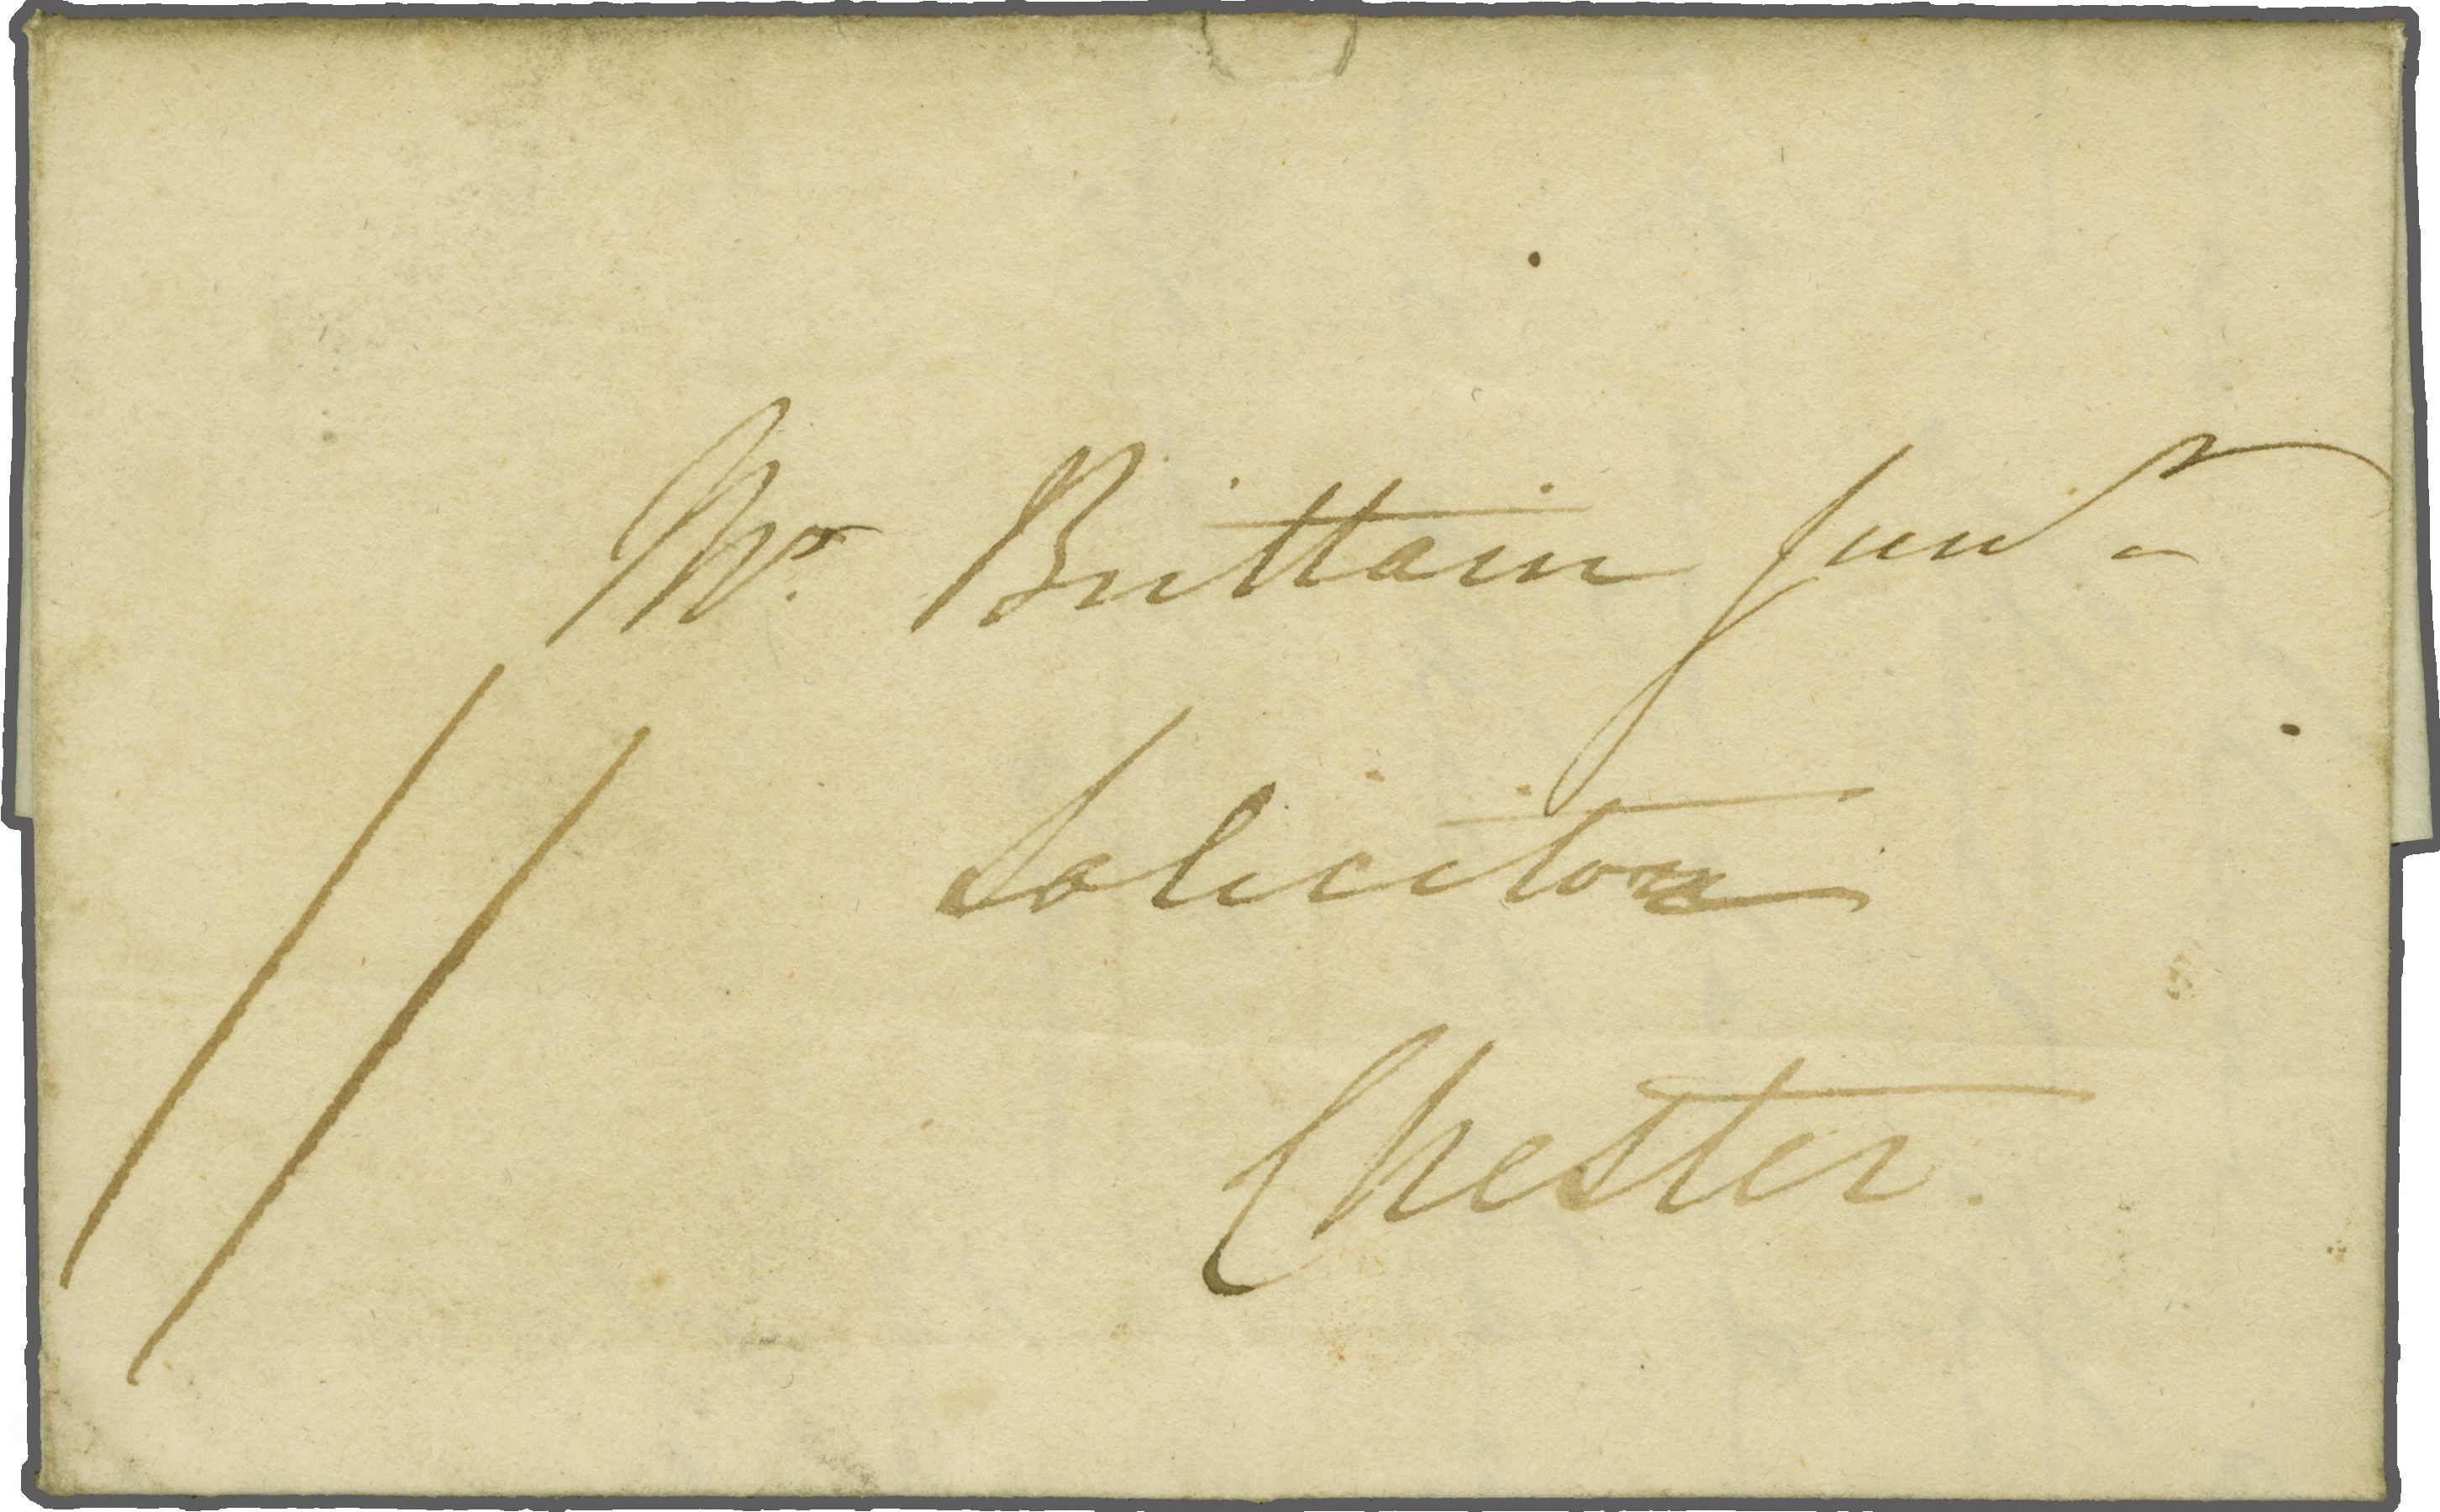 Mr. Brittain Junr
Solicitor
Chester.